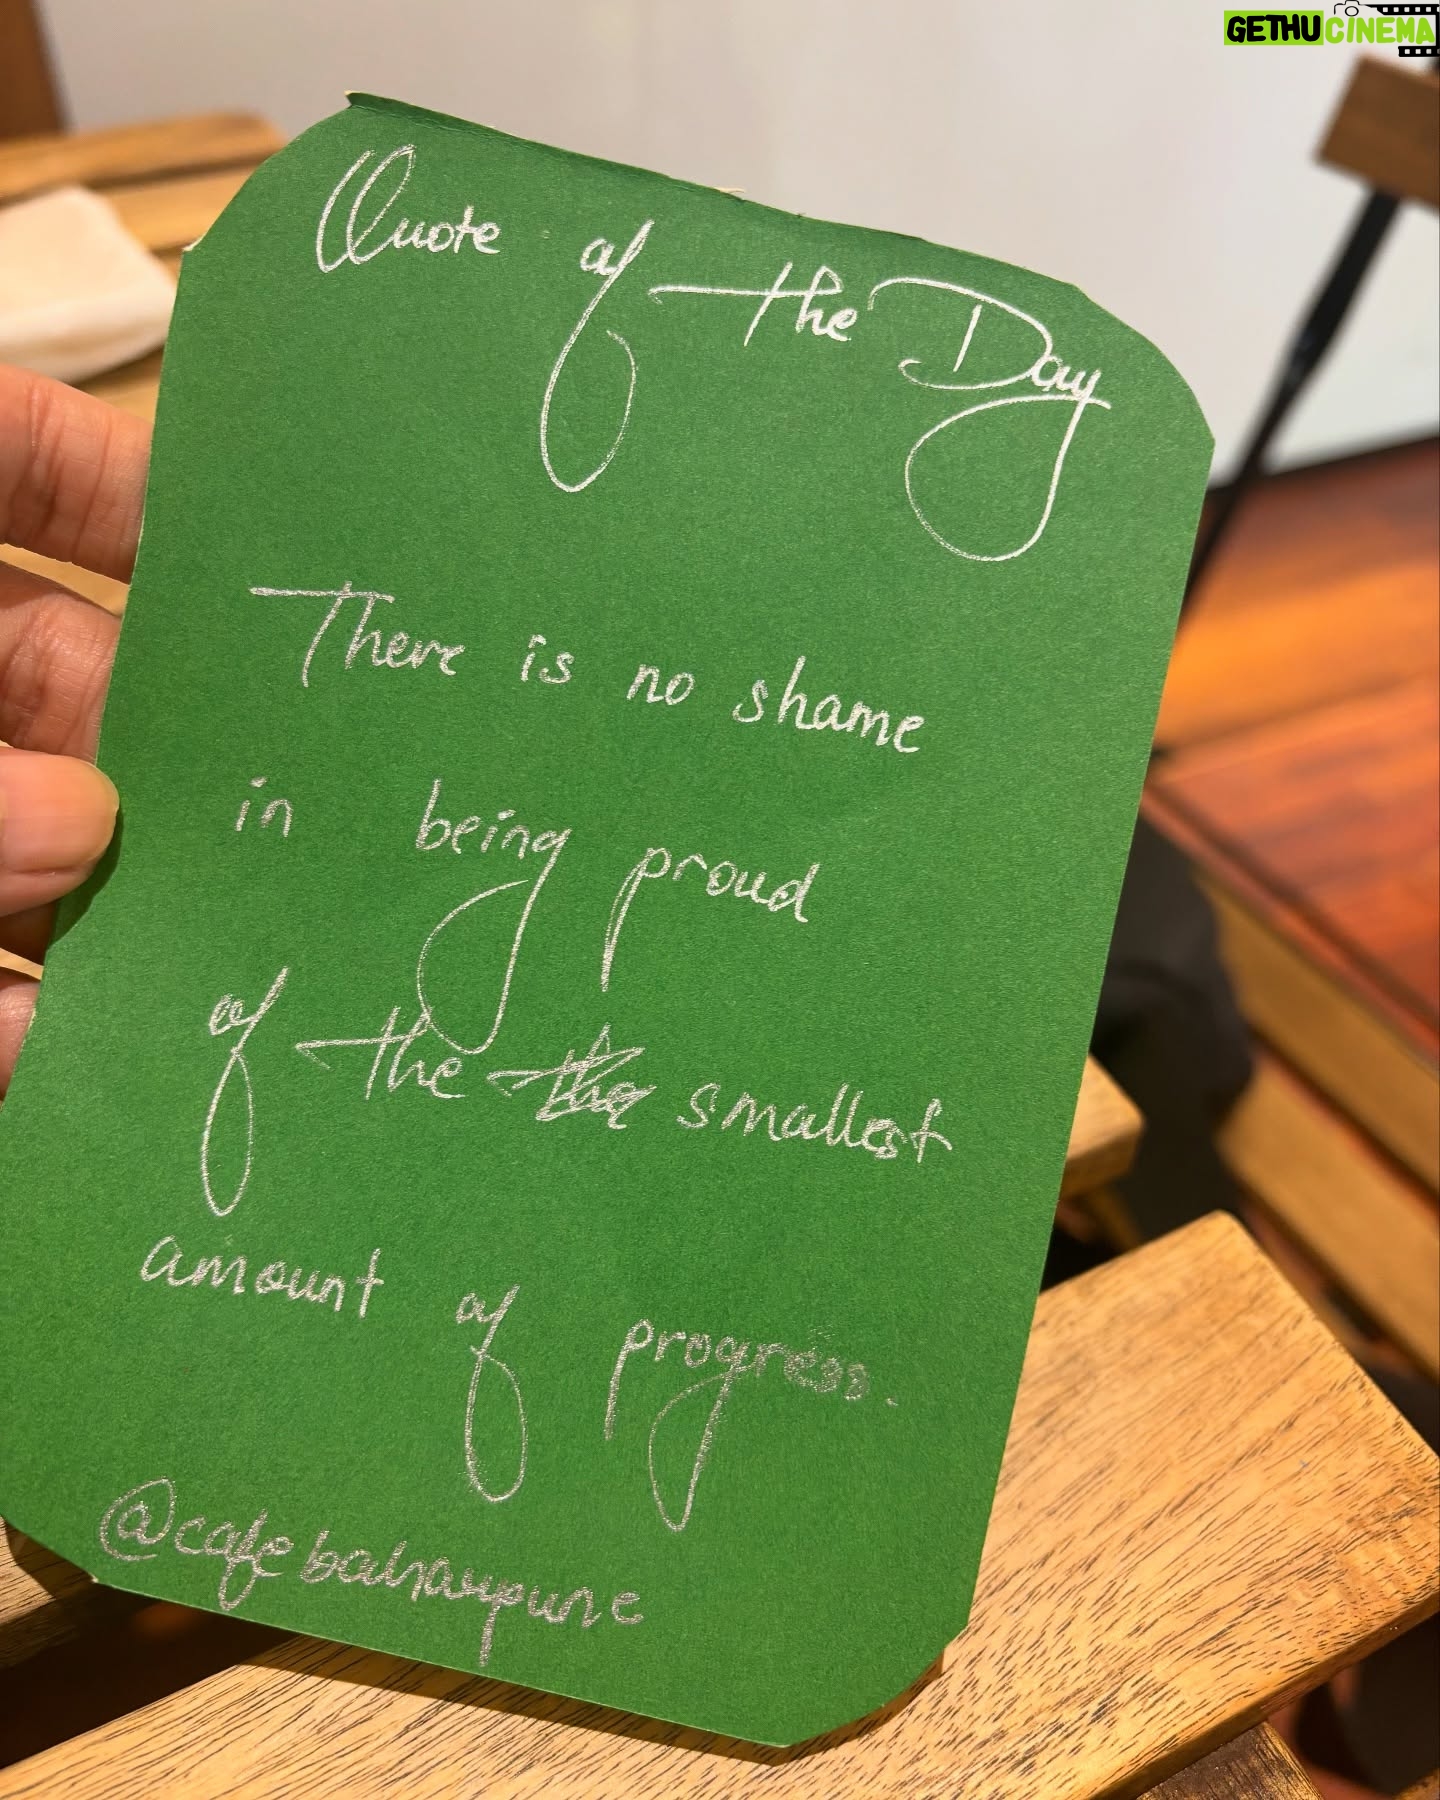 GETHUCINEMA
Quote of the Day
There is no shame
in being proud
of the the smallest
amount of progress.
@cafebahaypune